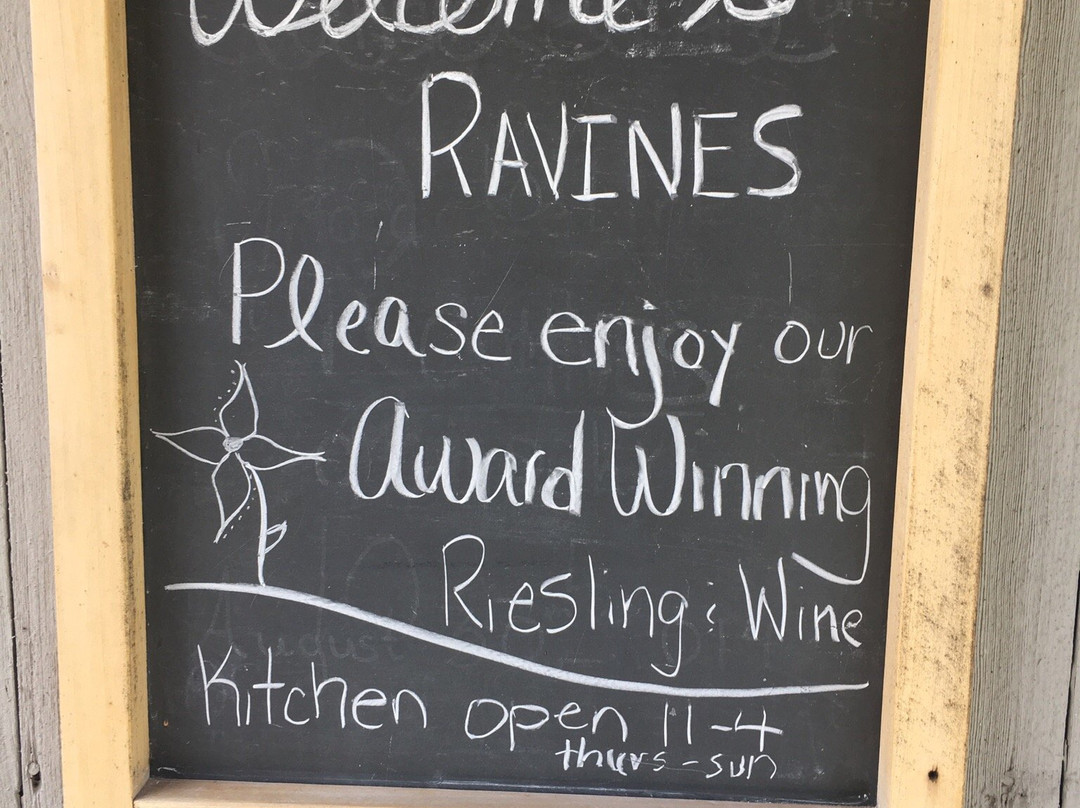 Welcome to
RAVINES
Please enjoy our
Award Winning
Riesling; Wine
Kitchen open 11-4
thurs-sun